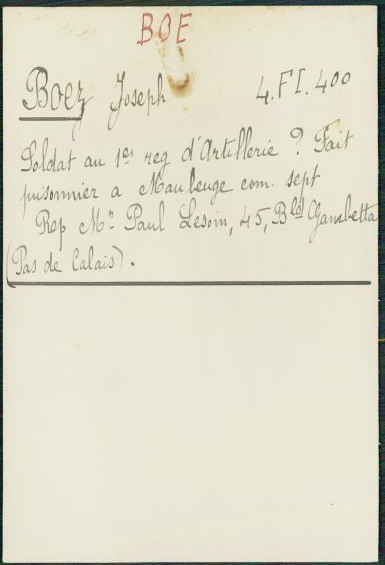 BOE
Boez Joseph 4.FI.400
Soldat au 1er reg d'Artillerie ? Fait
prisonnier a Maubeuge com. sept
Rep Mr Paul Lesoin, 45, Bld Gambetta
(Pas de Calais).